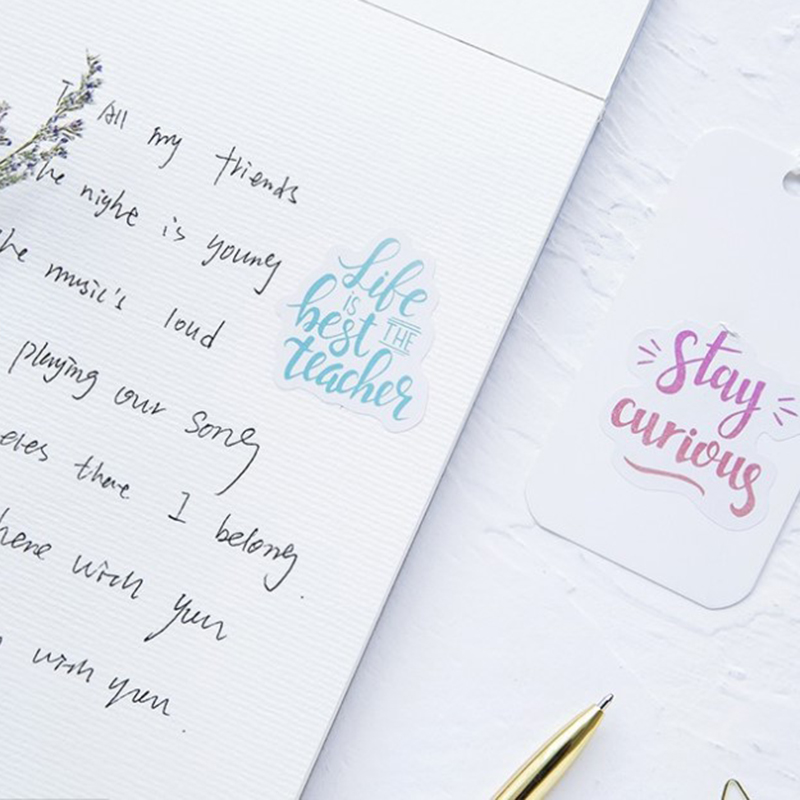 All my friends
he night is young
the music's loud
playing our song
there I belong.
here with you
with you.
Life
is
best THE
teacher
Stay
curious